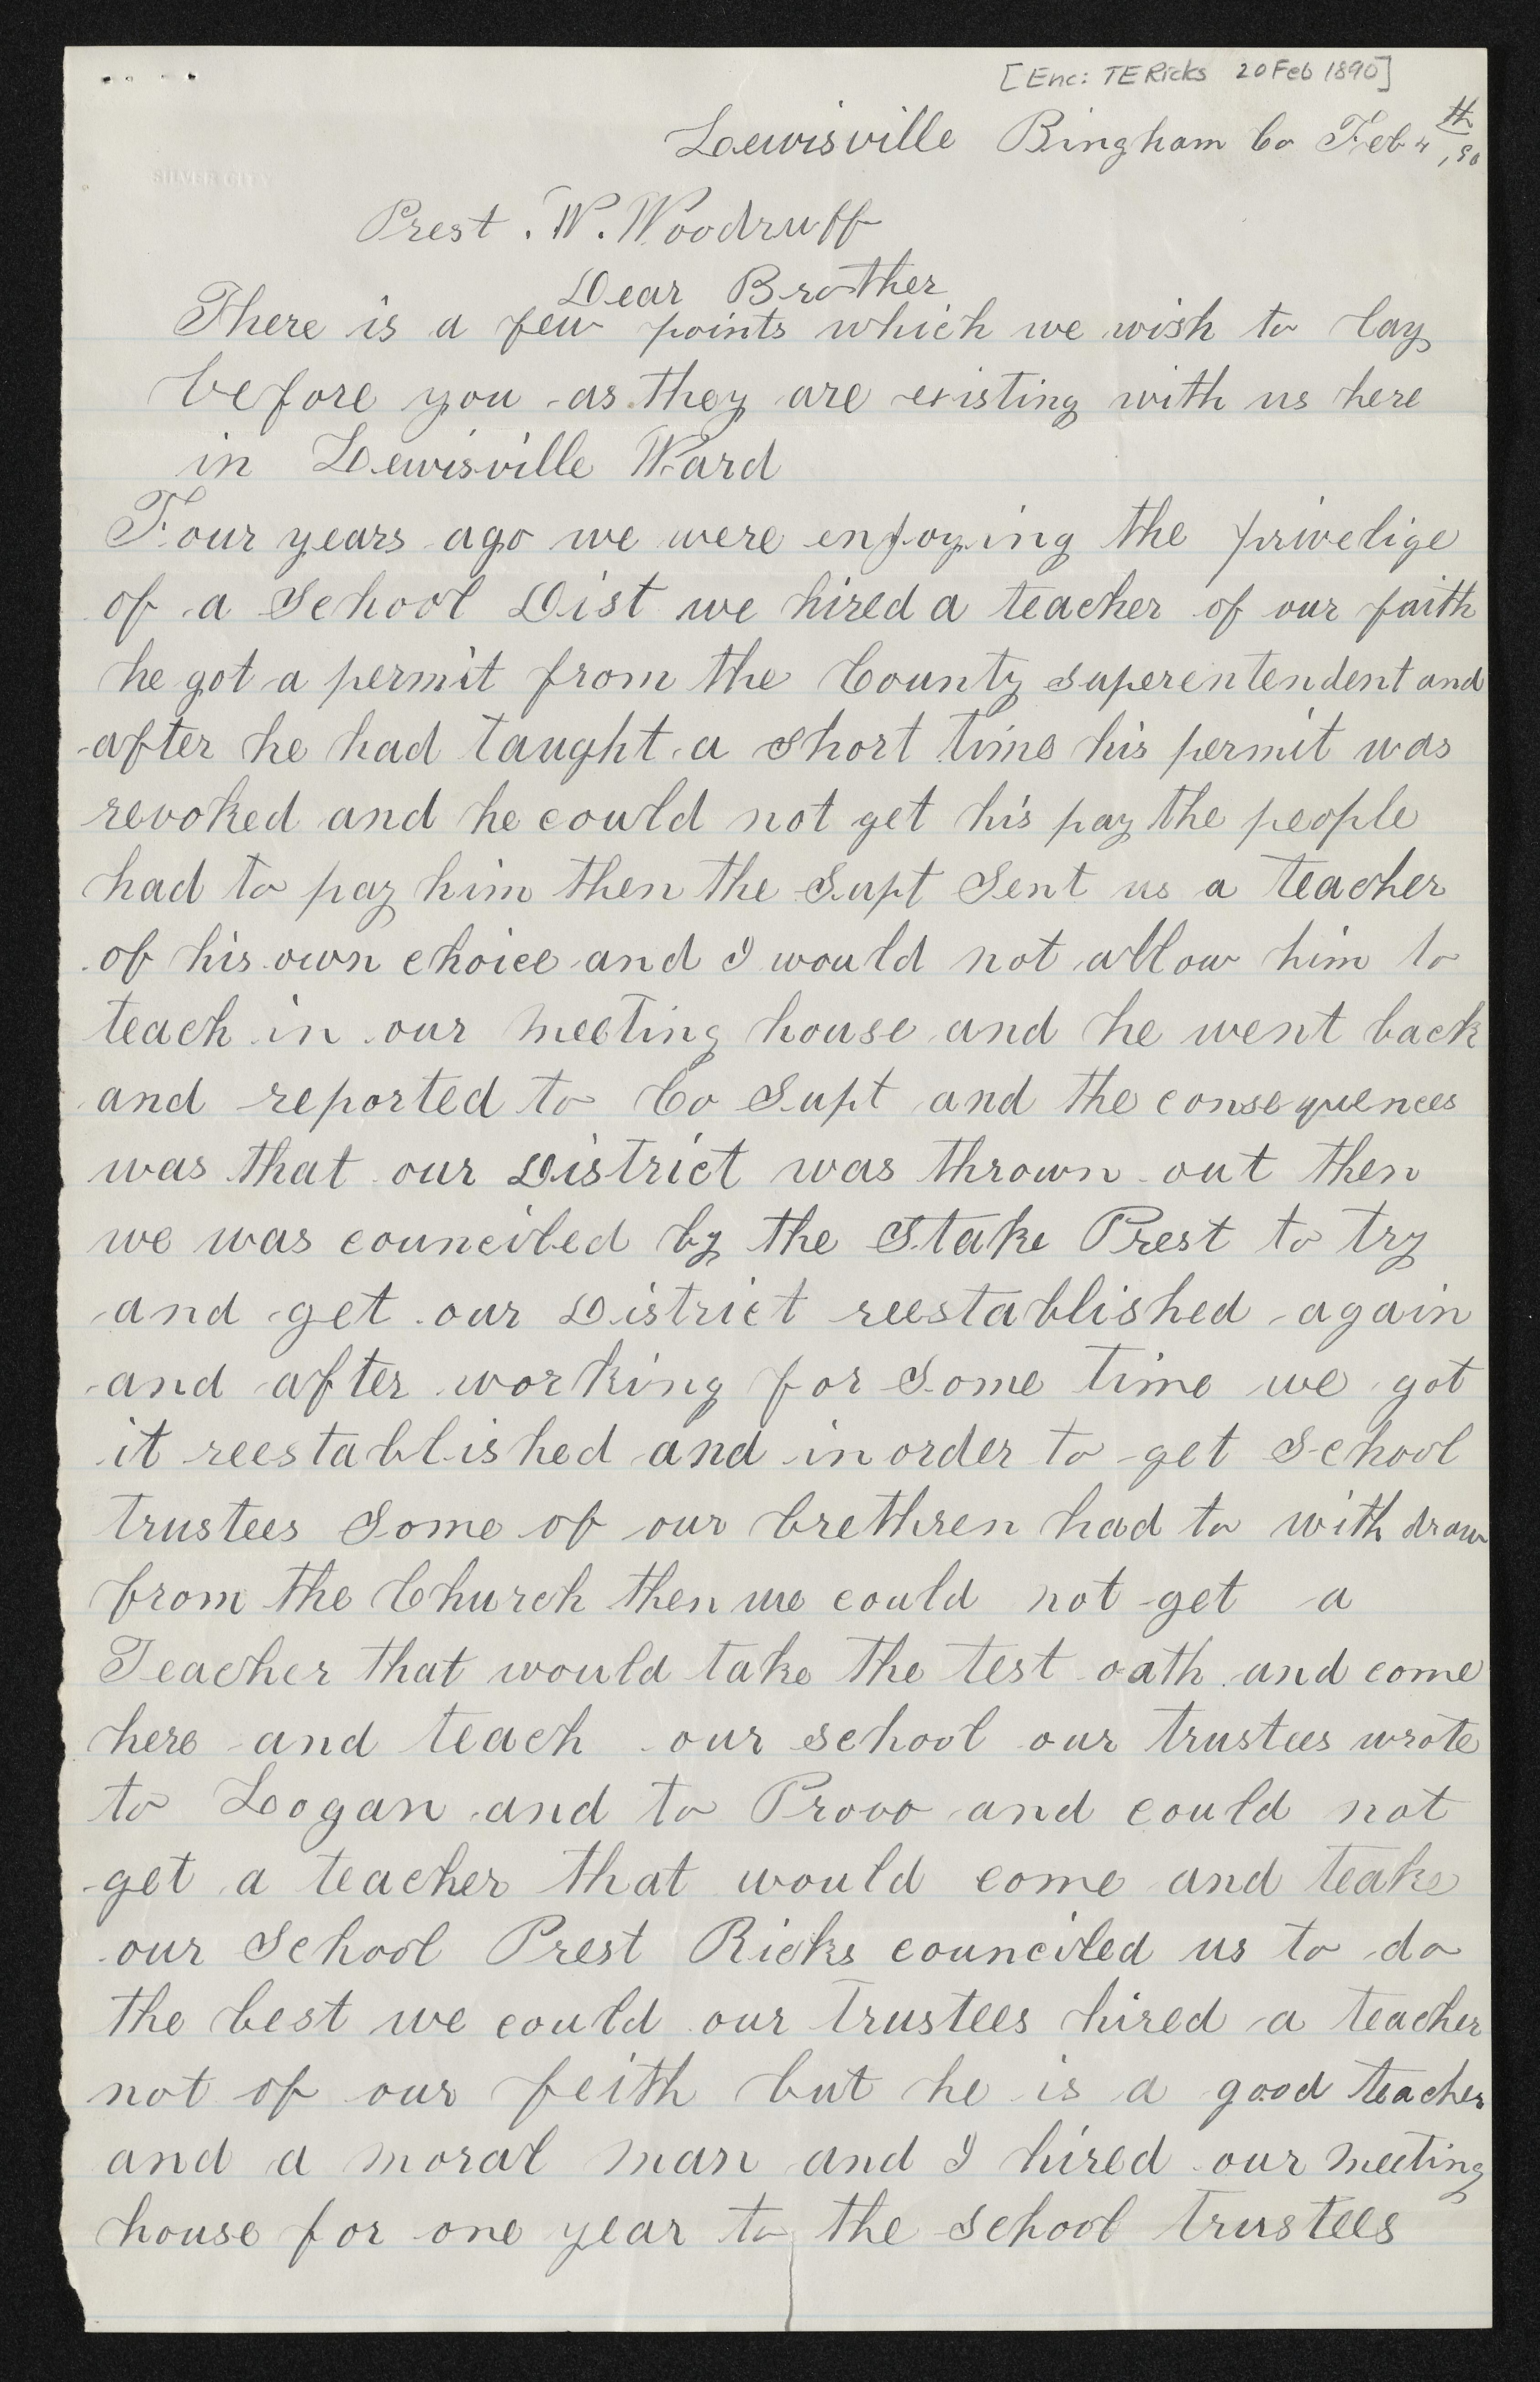 [Enc: TE Ricks 20 Feb 1890]
Lewisville Bingham Co Feb 4th, 90
SILVER CITY
Prest. W. Woodruff
Dear Brother
There is a few points which we wish to lay
before you as they are existing with us here
in Lewisville Ward
Four years ago we were enjoying the privelige
of a School Dist we hired a teacher of our faith
he got a permit from the County superentendent and
after he had taught a short time his permit was
revoked and he could not get his pay the people
had to pay him then the Supt Sent us a teacher
of his own choice and I would not allow him to
teach in our meeting house and he went back
and reported to Co Supt and the consequences
was that our District was thrown out then
we was counciled by the Stake Prest to try
and get our District reestablished again
and after working for Some time we got
it reestablished and in order to get School
trustees Some of our brethren had to with draw
from the Church then we could not get a
Teacher that would take the test oath and come
here and teach our school our trustees wrote
to Logan and to Provo and could not
get a teacher that would come and teake
our School Prest Ricks counciled us to do
the best we could our trustees hired a teacher
not of our feith but he is a good teacher
and a moral man and I hired our meeting
house for one year to the school trustees